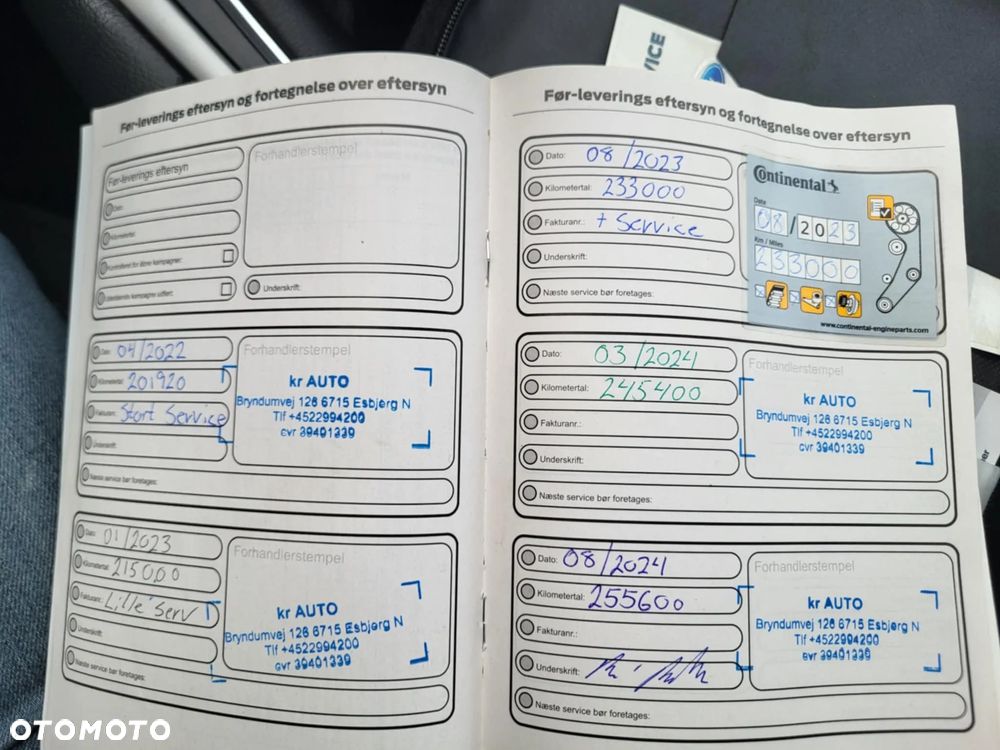 Før-leverings eftersyn og fortegnelse over eftersyn
Før-leverings eftersyn
Dato:
Kilometertal:
Kontrolleret for åbne kampagner:
Udestående kampagne udført:
Forhandlerstempel
Underskrift:
Dato: 04/2022
Kilometertal: 201920
Fakturanr.: Stort Service
Underskrift:
Næste service bør foretages:
Forhandlerstempel
kr AUTO
Bryndumvej 126 6715 Esbjerg N
Tlf +4522994200
cvr 39401339
Dato: 01/2023
Kilometertal: 215000
Fakturanr.: Lille Serv
Underskrift:
Næste service bør foretages:
Forhandlerstempel
kr AUTO
Bryndumvej 126 6715 Esbjerg N
Tlf +4522994200
cvr 39401339
VICE
Før-leverings eftersyn og fortegnelse over eftersyn
Dato: 08/2023
Kilometertal: 233000
Fakturanr.: + Service
Underskrift:
Næste service bør foretages:
Continental
Date
08/2023
Km / Miles
233000
www.continental-engineparts.com
Dato: 03/2024
Kilometertal: 245400
Fakturanr.:
Underskrift:
Næste service bør foretages:
Forhandlerstempel
kr AUTO
Bryndumvej 126 6715 Esbjerg N
Tlf +4522994200
cvr 39401339
Dato: 08/2024
Kilometertal: 255600
Fakturanr.:
Underskrift:
Næste service bør foretages:
Forhandlerstempel
kr AUTO
Bryndumvej 126 6715 Esbjerg N
Tlf +4522994200
cvr 39401339
OTOMOTO